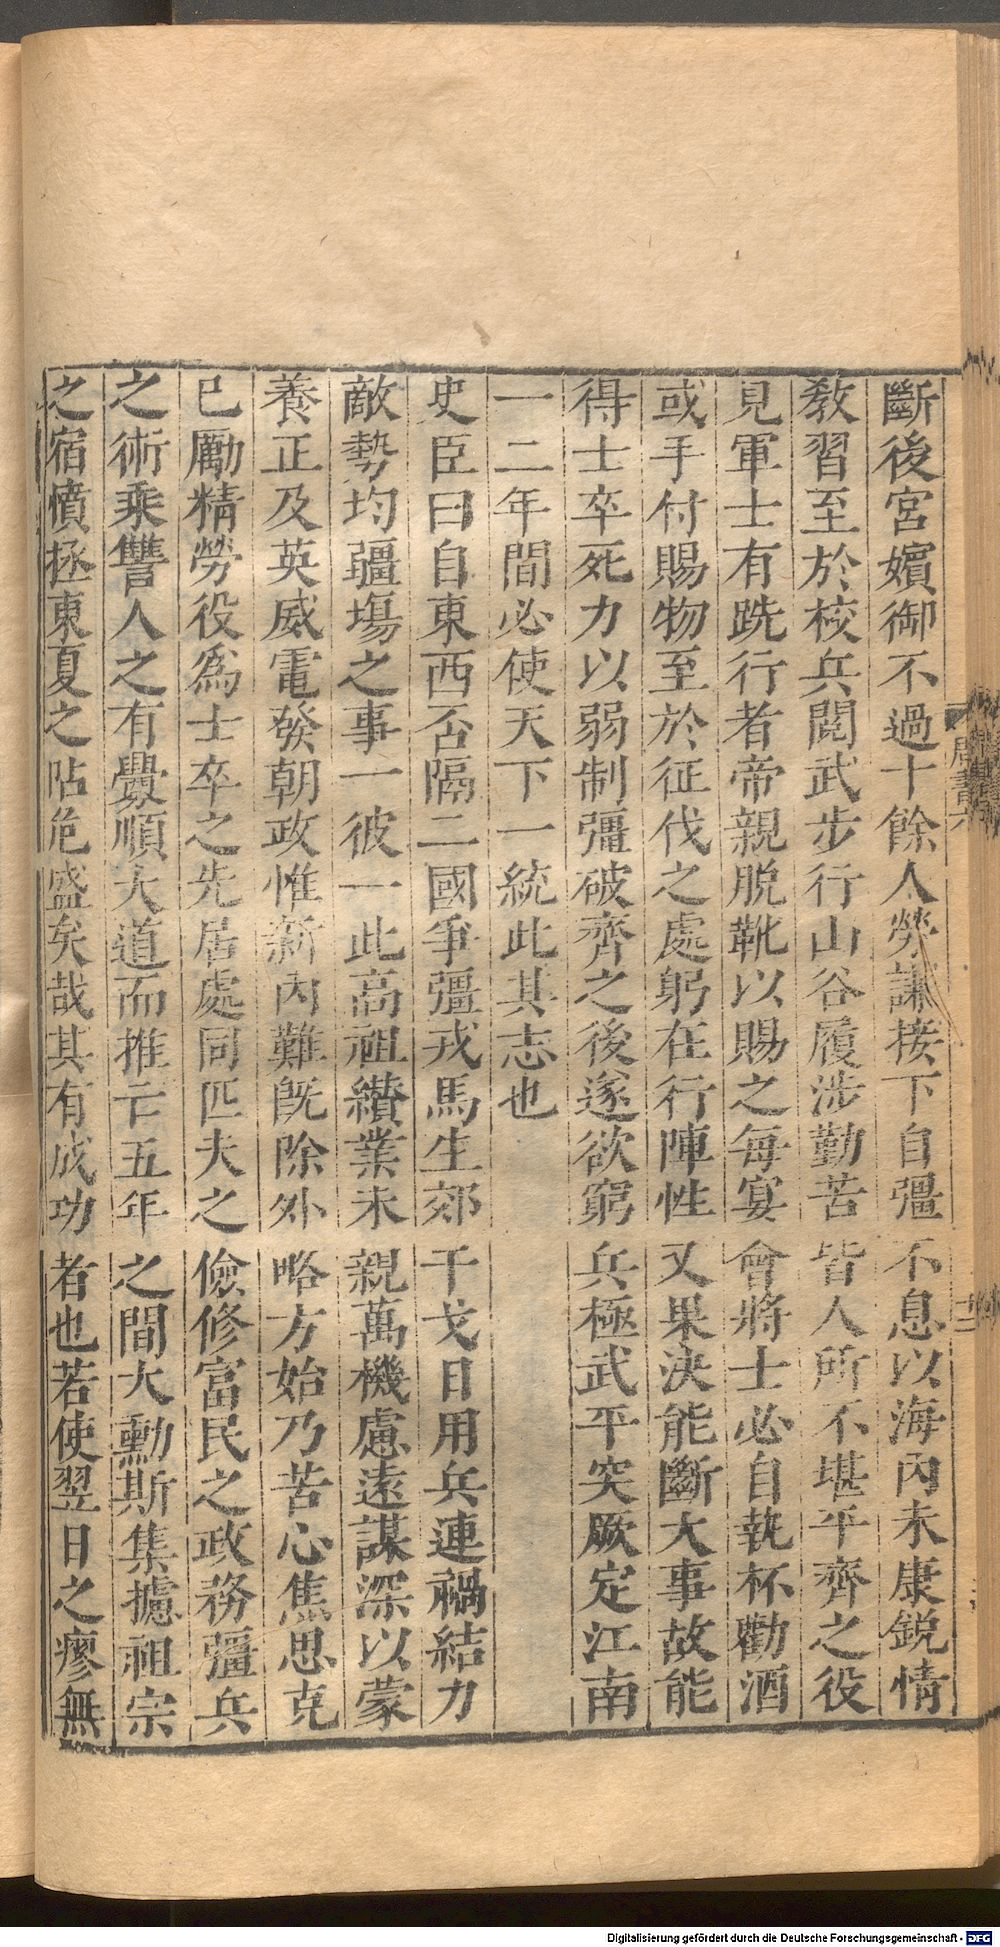 周書六
斷後宮嬪御不過十餘人勞謙接下自彊不息以海內未康銳情
教習至於校兵閱武步行山谷履涉勤苦皆人所不堪平齊之役
見軍士有跣行者帝親脫靴以賜之每宴會將士必自執杯勸酒
或手付賜物至於征伐之處躬在行陣性又果決能斷大事故能
得士卒死力以弱制彊破齊之後遂欲窮兵極武平突厥定江南
一二年間必使天下一統此其志也
史臣曰自東西否隔二國爭彊戎馬生郊干戈日用兵連禍結力
敵勢均疆場之事一彼一此高祖纘業未親萬機慮遠謀深以蒙
養正及英威電發朝政惟新內難既除外略方始乃苦心焦思克
已勵精勞役爲士卒之先居處同匹夫之儉修富民之政務彊兵
之術乘讐人之有釁順大道而推亡五年之間大勳斯集攄祖宗
之宿憤拯東夏之阽危盛矣哉其有成功者也若使翌日之瘳無
Digitalisierung gefördert durch die Deutsche Forschungsgemeinschaft - DFG